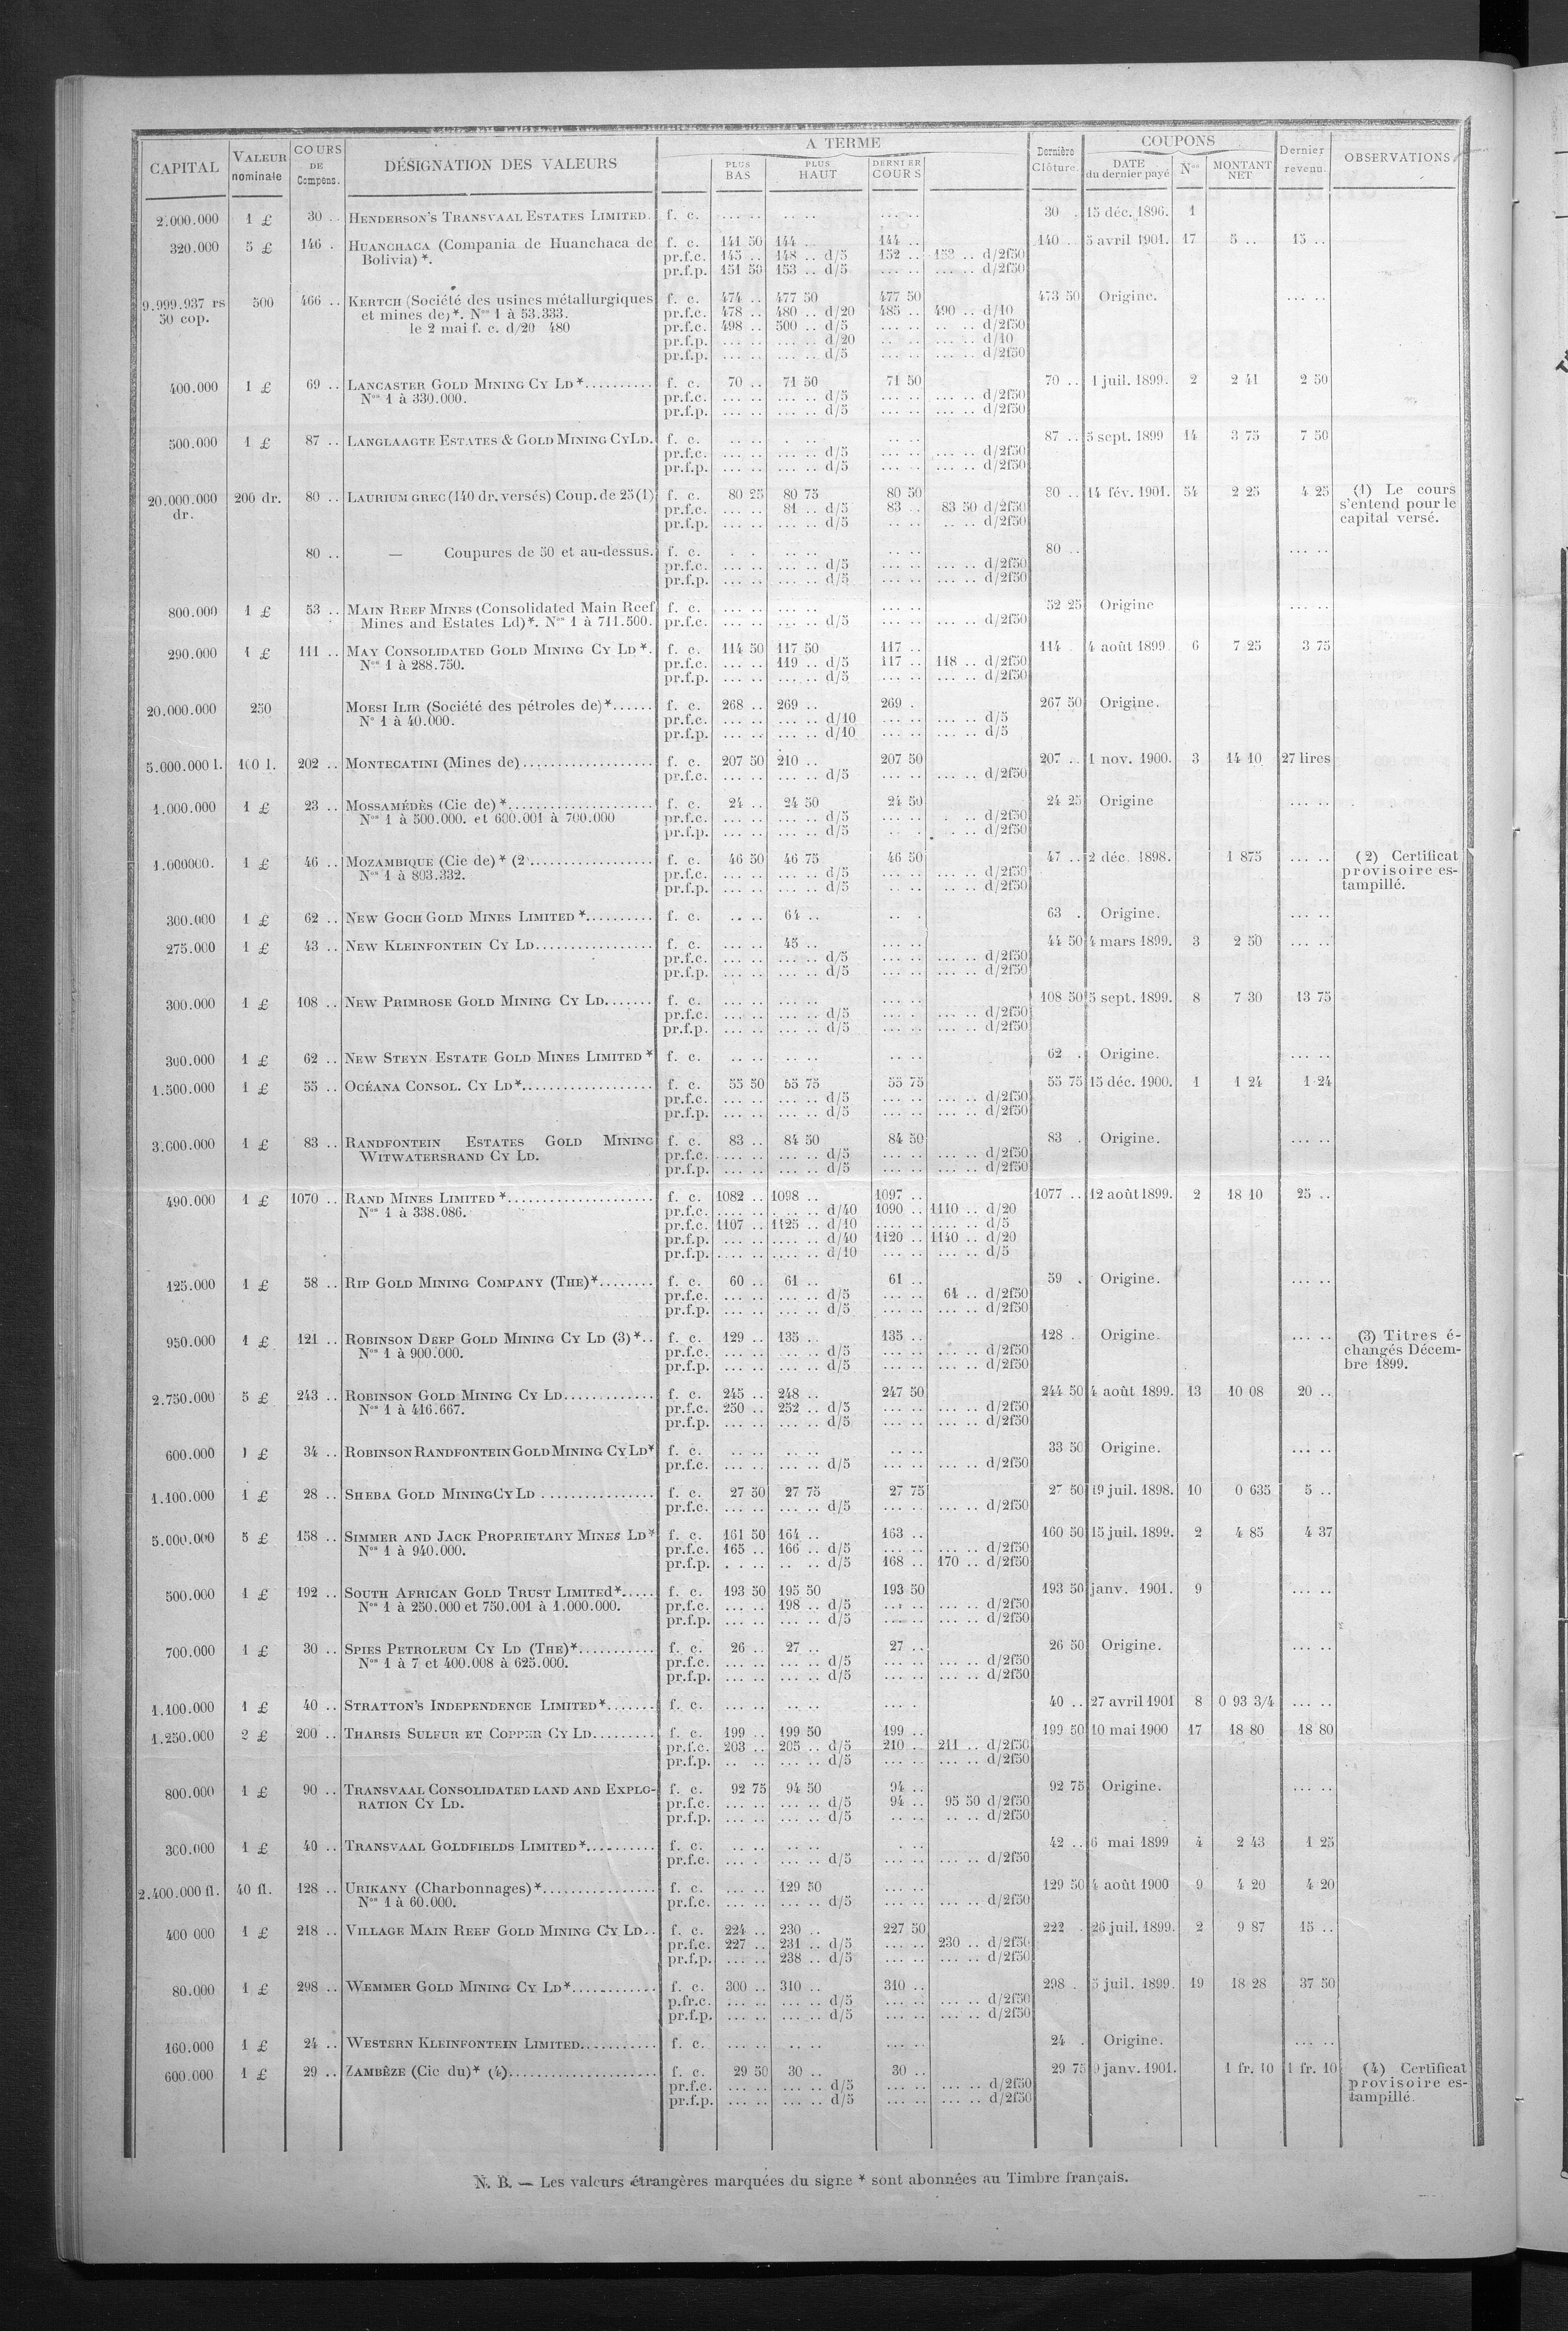 CAPITAL VALEUR nominale COURS DE Compens. DÉSIGNATION DES VALEURS A TERME PLUS BAS PLUS HAUT DERNIER COURS Dernière Clôture. COUPONS DATE du dernier payé Nos MONTANT NET Dernier revenu. OBSERVATIONS
2.000.000 1 £ 30 .. HENDERSON'S TRANSVAAL ESTATES LIMITED. f. c. ... .. .. .. ... .. 30 . 15 déc. 1896. 1
320.000 5 £ 146 . HUANCHACA (Compania de Huanchaca de f. c. 141 50 144 .. 144 .. 140 .. 5 avril 1901. 17 5 .. 15 ..
Bolivia) *. pr.f.c. 145 .. 148 .. d/5 152 .. 153 .. d/2f50
pr.f.p. 151 50 153 .. d/5 ... .. ... .. d/2f50
9.999.937 rs 500 466 .. KERTCH (Société des usines métallurgiques f. c. 474 .. 477 50 477 50 473 50 Origine. ... ..
50 cop. et mines de) *. Nos 1 à 53.333. pr.f.c. 478 .. 480 .. d/20 485 .. 490 .. d/10
le 2 mai f. c. d/20 480 pr.f.c. 498 .. 500 .. d/5 ... .. .. .. d/2f50
pr.f.p. ... .. ... .. d/20 .. .. ... .. d/10
pr.f.p. ... .. ... .. d/5 ... .. ... .. d/2f50
400.000 1 £ 69 .. LANCASTER GOLD MINING CY LD *.......... f. c. 70 .. 71 50 71 50 70 .. 1 juil. 1899. 2 2 41 2 50
Nos 1 à 330.000. pr.f.c. ... .. ... .. d/5 ... .. ... .. d/2f50
pr.f.p. ... .. ... .. d/5 ... .. ... .. d/2f50
500.000 1 £ 87 .. LANGLAAGTE ESTATES & GOLD MINING CY LD. f. c. .. .. . .. .. .. 87 .. 5 sept. 1899 14 3 75 7 50
pr.f.c. ... .. ... .. d/5 ... .. ... .. d/2f50
pr.f.p. ... .. ... .. d/5 ... .. ... .. d/2f50
20.000.000 200 dr. 80 .. LAURIUM GREC (140 dr. versés) Coup. de 25 (1) f. c. 80 25 80 75 80 50 80 .. 14 fév. 1901. 54 2 25 4 25 (1) Le cours
dr. pr.f.c. ... .. 81 .. d/5 83 .. 83 50 d/2f50 s'entend pour le
pr.f.p. ... .. ... .. d/5 .. .. .. .. d/2f50 capital versé.
80 .. — Coupures de 50 et au-dessus. f. c. . . .. .. .. .. 80 .. ... ..
pr.f.c. ... .. ... .. d/5 ... .. ... .. d/2f50
pr.f.p. ... .. ... .. d/5 ... .. ... .. d/2f50
800.000 1 £ 53 .. MAIN REEF MINES (Consolidated Main Reef f. c. ... .. ... .. ... .. 52 25 Origine ... ..
Mines and Estates Ld) *. Nos 1 à 711.500. pr.f.c. ... .. ... .. d/5 ... .. ... .. d/2f50
290.000 1 £ 111 .. MAY CONSOLIDATED GOLD MINING CY LD *. f. c. 114 50 117 50 117 .. 114 . 4 août 1899 6 7 25 3 75
Nos 1 à 288.750. pr.f.c. ... .. 119 .. d/5 117 .. 118 .. d/2f50
pr.f.p. ... .. ... .. d/5 ... .. ... .. d/2f50
20.000.000 250 MOESI ILIR (Société des pétroles de) *...... f. c. 268 .. 269 .. 269 . 267 50 Origine.
No 1 à 40.000. pr.f.c. ... .. ... .. d/10 ... .. ... .. d/5
pr.f.p. ... .. ... .. d/10 ... .. ... .. d/5
5.000.000 l. 100 l. 202 .. MONTECATINI (Mines de).................. f. c. 207 50 210 .. 207 50 207 .. 1 nov. 1900. 3 14 10 27 lires
pr.f.c. ... .. ... .. d/5 ... .. ... .. d/2f50
1.000.000 1 £ 23 .. MOSSAMÉDÈS (Cie de) *.................... f. c. 24 .. 24 50 24 50 24 25 Origine ... ..
Nos 1 à 500.000. et 600.001 à 700.000 pr.f.c. ... .. ... .. d/5 ... .. . .. d/2f50
pr.f.p. ... .. ... .. d/5 .. . . .. d/2f50
1.000000. 1 £ 46 .. MOZAMBIQUE (Cie de) * (2................. f. c. 46 50 46 75 46 50 47 .. 2 déc. 1898. 1 875 ... .. (2) Certificat
Nos 1 à 803.332. pr.f.c. ... .. ... .. d/5 ... .. ... .. d/2f50 provisoire es-
pr.f.p. ... .. ... .. d/5 .. .. .. .. d/2f50 tampillé.
300.000 1 £ 62 .. NEW GOCH GOLD MINES LIMITED *.......... f. c. .. .. 64 .. .. . 63 . Origine. ... ..
275.000 1 £ 43 .. NEW KLEINFONTEIN CY LD................. f. c. ... .. 45 .. ... .. 44 50 4 mars 1899. 3 2 50 ... ..
pr.f.c. ... .. ... .. d/5 ... .. ... .. d/2f50
pr.f.p. ... .. ... .. d/5 ... .. ... .. d/2f50
300.000 1 £ 108 .. NEW PRIMROSE GOLD MINING CY LD....... f. c. ... .. ... .. ... .. 108 50 5 sept. 1899. 8 7 30 13 75
pr.f.c. ... .. ... .. d/5 ... . ... .. d/2f50
pr.f.p. ... .. ... .. d/5 ... .. ... .. d/2f50
300.000 1 £ 62 .. NEW STEYN ESTATE GOLD MINES LIMITED * f. c. .. .. .. .. .. .. 62 . Origine. ... ..
1.500.000 1 £ 55 .. OCÉANA CONSOL. CY LD *................... f. c. 55 50 55 75 55 75 55 75 15 déc. 1900. 1 1 24 1 24
pr.f.c. ... .. ... .. d/5 ... .. ... .. d/2f50
pr.f.p. ... .. ... .. d/5 ... .. ... .. d/2f50
3.000.000 1 £ 83 .. RANDFONTEIN ESTATES GOLD MINING f. c. 83 .. 84 50 84 50 83 . Origine. ... ..
WITWATERSRAND CY LD. pr.f.c. ... .. ... .. d/5 ... .. ... .. d/2f50
pr.f.p. ... .. ... .. d/5 ... .. ... .. d/2f50
490.000 1 £ 1070 .. RAND MINES LIMITED *..................... f. c. 1082 .. 1098 .. 1097 .. 1077 .. 12 août 1899. 2 18 10 25 ..
Nos 1 à 338.086. pr.f.c. .... .. . .. .. d/40 1090 .. 1110 .. d/20
pr.f.c. 1107 .. 1125 .. d/10 .... .. .... .. d/5
pr.f.p. ... .. .... .. d/40 1120 .. 1140 .. d/20
pr.f.p. .... .. .... .. d/10 ... .. ... .. d/5
125.000 1 £ 58 .. RIP GOLD MINING COMPANY (THE) *........ f. c. 60 .. 61 .. 61 .. 59 . Origine. ... ..
pr.f.c. ... .. ... .. d/5 ... .. 64 .. d/2f50
pr.f.p. ... .. ... .. d/5 ... .. ... .. d/2f50
950.000 1 £ 121 .. ROBINSON DEEP GOLD MINING CY LD (3) *.. f. c. 129 .. 135 .. 135 .. 128 . Origine. ... .. (3) Titres é-
Nos 1 à 900.000. pr.f.c. ... .. ... .. d/5 ... .. ... .. d/2f50 changés Décem-
pr.f.p. ... .. ... .. d/5 ... .. ... .. d/2f50 bre 1899.
2.750.000 5 £ 243 .. ROBINSON GOLD MINING CY LD............. f. c. 245 .. 248 .. 247 50 244 50 4 août 1899. 13 10 08 20 ..
Nos 1 à 416.667. pr.f.c. 250 .. 252 .. d/5 ... .. ... .. d/2f50
pr.f.p. ... .. ... .. d/5 ... .. ... .. d/2f50
600.000 1 £ 34 .. ROBINSON RANDFONTEIN GOLD MINING CY LD * f. c. .. .. .. .. .. .. 33 50 Origine. ... ..
pr.f.c. ... .. ... .. d/5 ... .. ... .. d/2f50
1.100.000 1 £ 28 .. SHEBA GOLD MINING CY LD ................ f. c. 27 50 27 75 27 75 27 50 19 juil. 1898. 10 0 635 5 ..
pr.f.c. ... .. ... .. d/5 ... .. ... .. d/2f50
5.000.000 5 £ 158 .. SIMMER AND JACK PROPRIETARY MINES LD * f. c. 161 50 164 .. 163 .. 160 50 15 juil. 1899. 2 4 85 4 37
Nos 1 à 940.000. pr.f.c. 165 .. 166 .. d/5 ... .. ... .. d/2f50
pr.f.p. . . .. .. .. d/5 168 .. 170 .. d/2f50
500.000 1 £ 192 .. SOUTH AFRICAN GOLD TRUST LIMITEd *..... f. c. 193 50 195 50 193 50 193 50 janv. 1901. 9 ... ..
Nos 1 à 250.000 et 750.001 à 1.000.000. pr.f.c. ... .. 198 .. d/5 ... .. ... .. d/2f50
pr.f.p. ... .. ... .. d/5 ... .. ... .. d/2f50
700.000 1 £ 30 .. SPIES PETROLEUM CY LD (THE) *........... f. c. 26 .. 27 .. 27 .. 26 50 Origine. ... ..
Nos 1 à 7 et 400.008 à 625.000. pr.f.c. ... .. ... .. d/5 ... .. ... .. d/2f50
pr.f.p. ... .. ... .. d/5 ... .. ... .. d/2f50
1.100.000 1 £ 40 .. STRATTON'S INDEPENDENCE LIMITED *....... f. c. ... .. .. .. ... . 40 .. 27 avril 1901 8 0 93 3/4 ... ..
1.250.000 2 £ 200 .. THARSIS SULFUR ET COPPER CY LD......... f. c. 199 .. 199 50 199 .. 199 50 10 mai 1900 17 18 80 18 80
pr.f.c. 203 .. 205 .. d/5 210 .. 211 .. d/2f50
pr.f.p. .. .. ... .. d/5 ... .. ... .. d/2f50
800.000 1 £ 90 .. TRANSVAAL CONSOLIDATED LAND AND EXPLO- f. c. 92 75 94 50 94 .. 92 75 Origine. ... ..
RATION CY LD. pr.f.c. ... .. ... .. d/5 94 .. 95 50 d/2f50
pr.f.p. ... .. ... .. d/5 .. .. .. .. d/2f50
300.000 1 £ 40 .. TRANSVAAL GOLDFIELDS LIMITED *.......... f. c. .. .. .. .. . .. 42 .. 6 mai 1899 4 2 43 1 25
pr.f.c. ... . ... .. d/5 ... .. ... .. d/2f50
2.400.000 fl. 40 fl. 128 .. URIKANY (Charbonnages) *................ f. c. ... .. 129 50 ... .. 129 50 4 août 1900 9 4 20 4 20
Nos 1 à 60.000. pr.f.c. ... .. ... .. d/5 ... .. ... .. d/2f50
400 000 1 £ 218 .. VILLAGE MAIN REEF GOLD MINING CY LD.. f. c. 224 .. 230 .. 227 50 222 . 26 juil. 1899. 2 9 87 15 ..
pr.f.c. 227 .. 231 .. d/5 ... .. 230 .. d/2f50
pr.f.p. ... .. 238 .. d/5 ... .. ... .. d/2f50
80.000 1 £ 298 .. WEMMER GOLD MINING CY LD *............ f. c. 300 .. 310 .. 310 .. 298 . 5 juil. 1899. 19 18 28 37 50
p.fr.c. ... .. ... .. d/5 ... .. ... .. d/2f50
pr.f.p. ... .. ... .. d/5 ... .. ... .. d/2f50
160.000 1 £ 24 .. WESTERN KLEINFONTEIN LIMITED........... f. c. ... .. .. .. ... .. 24 . Origine. ... ..
600.000 1 £ 29 .. ZAMBÈZE (Cie du) * (4)..................... f. c. 29 50 30 .. 30 .. 29 75 9 janv. 1901. 1 fr. 10 1 fr. 10 (4) Certificat
pr.f.c. ... .. ... .. d/5 ... .. ... .. d/2f50 provisoire es-
pr.f.p. ... .. ... .. d/5 ... .. ... .. d/2f50 tampillé.
N. B. — Les valeurs étrangères marquées du signe * sont abonnées au Timbre français.